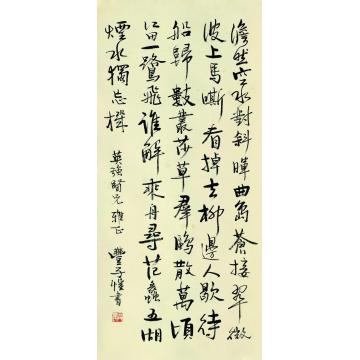 澹然空水對斜暉曲島蒼接翠微
波上馬嘶看掉去柳邊人歇待
船歸數叢莎草羣鷗散萬頃
江田一鷺飛誰解乘舟尋范蠡五湖
煙水獨忘機
英強賢兄雅正 豐子愷書